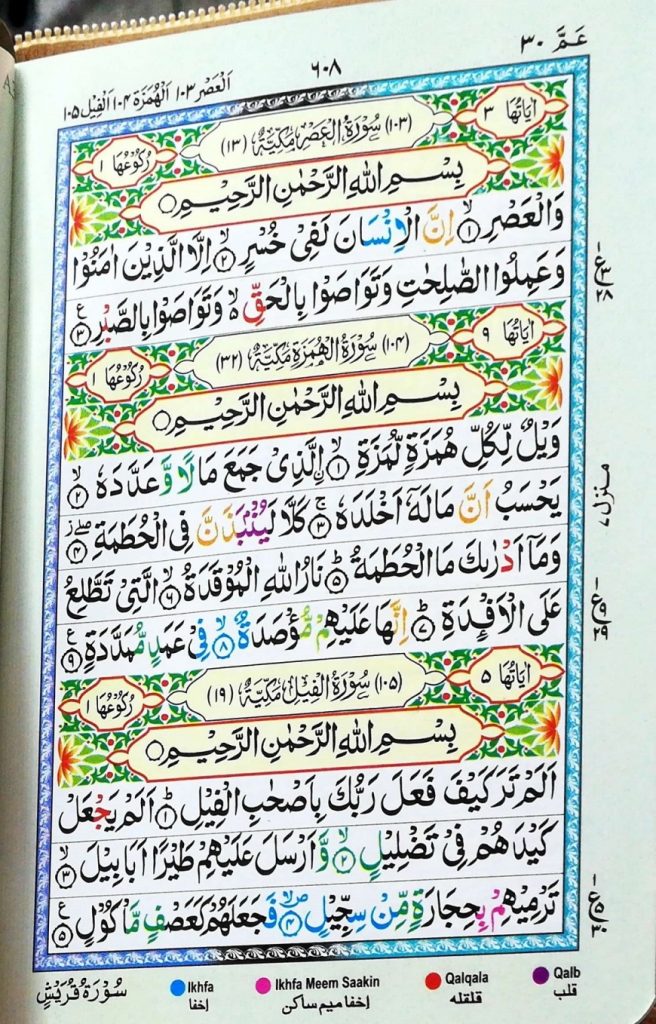 عَمَّ ٣٠
٦٠٨
اَلْعَصْر ١٠٣ اَلْهُمَزَة ١٠٤ اَلْفِيْل ١٠٥
اٰيَاتُهَا ٣
(١٠٣) سُوْرَةُ الْعَصْرِ مَكِّيَّةٌ (١٣)
رُكُوْعُهَا ١
بِسْمِ اللّٰهِ الرَّحْمٰنِ الرَّحِيْمِ
وَالْعَصْرِ ۙ﴿١﴾ اِنَّ الْاِنْسَانَ لَفِيْ خُسْرٍ ۙ﴿٢﴾ اِلَّا الَّذِيْنَ اٰمَنُوْا
وَعَمِلُوا الصّٰلِحٰتِ وَتَوَاصَوْا بِالْحَقِّ ۙ۬ وَتَوَاصَوْا بِالصَّبْرِ ﴿٣﴾ ع
اٰيَاتُهَا ٩
(١٠٤) سُوْرَةُ الْهُمَزَةِ مَكِّيَّةٌ (٣٢)
رُكُوْعُهَا ١
بِسْمِ اللّٰهِ الرَّحْمٰنِ الرَّحِيْمِ
وَيْلٌ لِّكُلِّ هُمَزَةٍ لُّمَزَةِ ۙ﴿١﴾ اۨلَّذِيْ جَمَعَ مَالًا وَّعَدَّدَهٗ ۙ﴿٢﴾
يَحْسَبُ اَنَّ مَالَهٗۤ اَخْلَدَهٗ ۚ﴿٣﴾ كَلَّا لَيُنْۢبَذَنَّ فِي الْحُطَمَةِ ۖ﴿٤﴾
وَمَاۤ اَدْرٰىكَ مَا الْحُطَمَةُ ؕ﴿٥﴾ نَارُ اللّٰهِ الْمُوْقَدَةُ ۙ﴿٦﴾ الَّتِيْ تَطَّلِعُ
عَلَى الْاَفْـِٕدَةِ ؕ﴿٧﴾ اِنَّهَا عَلَيْهِمْ مُّؤْصَدَةٌ ۙ﴿٨﴾ فِيْ عَمَدٍ مُّمَدَّدَةٍ ﴿٩﴾ ع
اٰيَاتُهَا ٥
(١٠٥) سُوْرَةُ الْفِيْلِ مَكِّيَّةٌ (١٩)
رُكُوْعُهَا ١
بِسْمِ اللّٰهِ الرَّحْمٰنِ الرَّحِيْمِ
اَلَمْ تَرَ كَيْفَ فَعَلَ رَبُّكَ بِاَصْحٰبِ الْفِيْلِ ؕ﴿١﴾ اَلَمْ يَجْعَلْ
كَيْدَهُمْ فِيْ تَضْلِيْلٍ ۙ﴿٢﴾ وَّاَرْسَلَ عَلَيْهِمْ طَيْرًا اَبَابِيْلَ ۙ﴿٣﴾
تَرْمِيْهِمْ بِحِجَارَةٍ مِّنْ سِجِّيْلٍ ۙ﴿٤﴾ فَجَعَلَهُمْ كَعَصْفٍ مَّاْكُوْلٍ ﴿٥﴾ ع
منزل ٧
سُوْرَةُ قُرَيْشٍ
Ikhfa
اِخفا
Ikhfa Meem Saakin
اِخفا میم ساکن
Qalqala
قلقله
Qalb
قلب